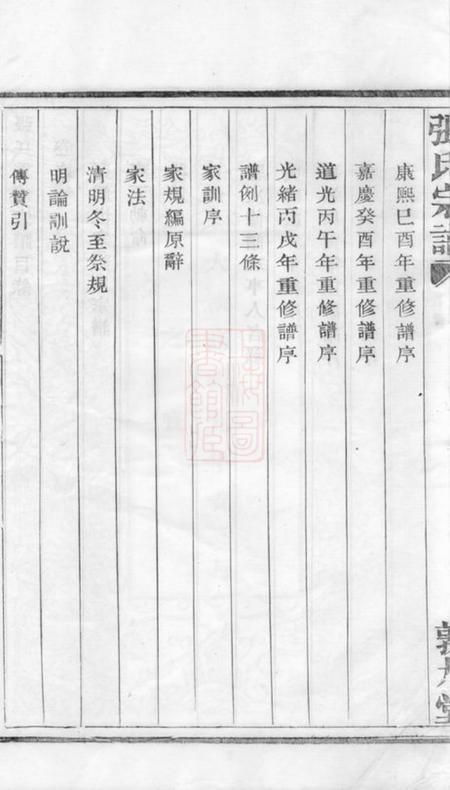 張氏宗譜
康熙巳酉年重修譜序
嘉慶癸酉年重修譜序
道光丙午年重修譜序
光緒丙戌年重修譜序
譜例十三條
家訓序
家規編原辭
家法
清明冬至祭規
明論訓說
傳贊引
堂
上海圖書館藏